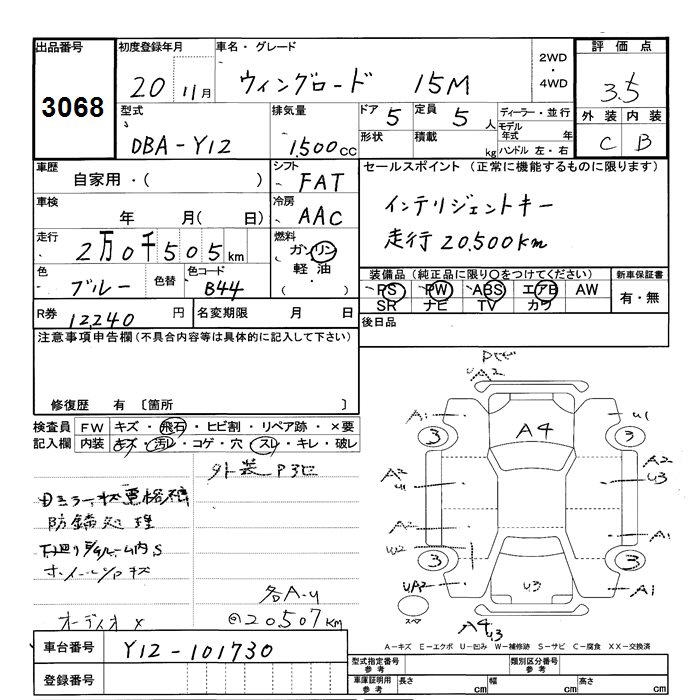 出品番号 3068
初度登録年月 20 11月
車名・グレード ウィングロード 15M
2WD・4WD
評価点 3.5
外装 内装
C B
型式 DBA-Y12
排気量 1,500cc
ドア 5 定員 5人
形状 積載 kg
ディーラー・並行
モデル年式 年
ハンドル 左・右
車歴 自家用・( )
シフト FAT
セールスポイント (正常に機能するものに限ります)
インテリジェントキー
走行20,500km
車検 年 月( 日)
冷房 AAC
走行 2万0千505km
燃料 ガソリン
軽油
・( )
色 ブルー 色替 色コード B44
装備品 (純正品に限り○をつけてください)
PS PW ABS エアB AW
SR ナビ TV カワ
新車保証書
有・無
R券 12,240円 名変期限 月 日
後日品
注意事項申告欄(不具合内容等は具体的に記入して下さい)
修復歴 有 〔箇所 〕
検査員 FW キズ・飛石・ヒビ割・リペア跡・×要
記入欄 内装 キズ・汚レ・コゲ・穴・スレ・キレ・破レ
外装P3セ
防錆処理
オーディオ×
各A-U
@20507km
A2
A1
U1
3
A4
3
A2
U
A2
U3
A2
W2
A1
3
3
UA2
U3
A1
A4 U3
A-キズ E-エクボ U-凹み W-補修跡 S-サビ C-腐食 XX-交換済
車台番号 Y12-101730
登録番号
型式指定番号 参考
類別区分番号 参考
車庫証明用 参考 長さ cm 幅 cm 高さ cm